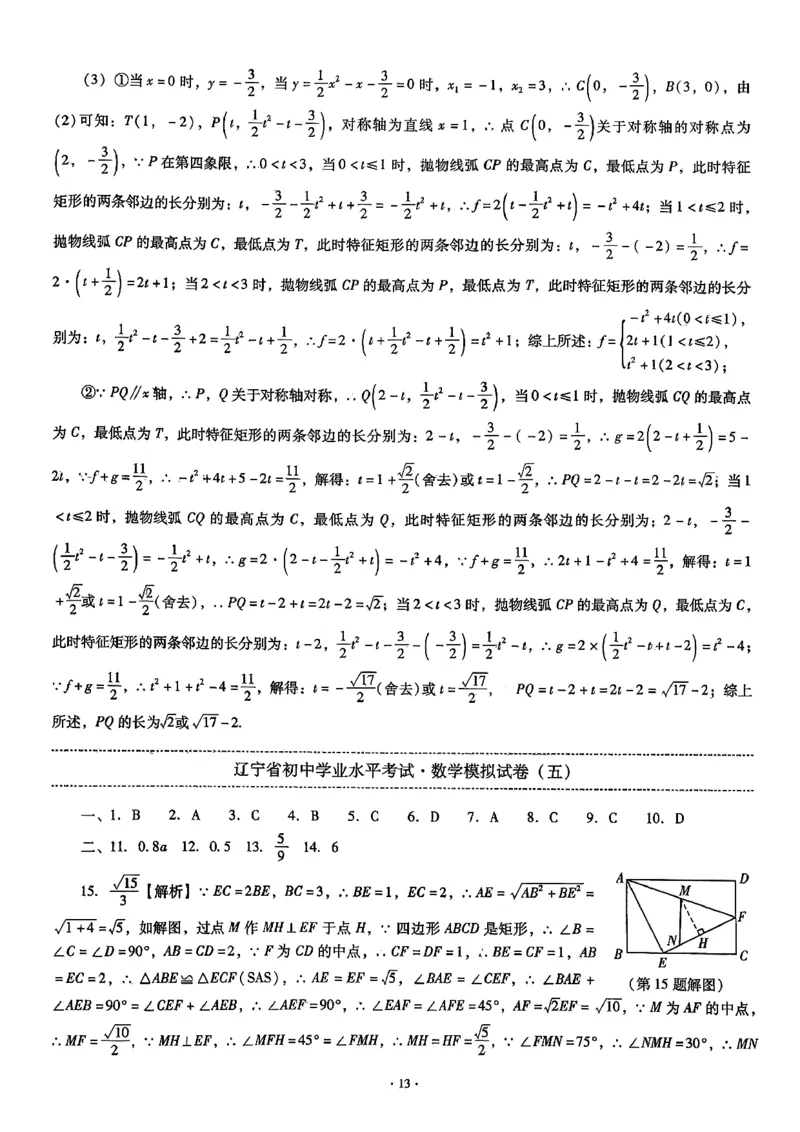 (3) ①当x=0时，y=-3/2，当y=1/2x²-x-3/2=0时，x₁=-1，x₂=3，∴C(0，-3/2)，B(3，0)，由
(2)可知：T(1，-2)，P(t，1/2t²-t-3/2)，对称轴为直线x=1，∴点C(0，-3/2)关于对称轴的对称点为
(2，-3/2)，∵P在第四象限，∴0<t<3，当0<t≤1时，抛物线弧CP的最高点为C，最低点为P，此时特征
矩形的两条邻边的长分别为：t，-3/2-1/2t²+t+3/2=-1/2t²+t，∴f=2(t-1/2t²+t)=-t²+4t；当1<t≤2时，
抛物线弧CP的最高点为C，最低点为T，此时特征矩形的两条邻边的长分别为：t，-3/2-(-2)=1/2，∴f=
2·(t+1/2)=2t+1；当2<t<3时，抛物线弧CP的最高点为P，最低点为T，此时特征矩形的两条邻边的长分
别为：t，1/2t²-t-3/2+2=1/2t²-t+1/2，∴f=2·(t+1/2t²-t+1/2)=t²+1；综上所述：f={-t²+4t(0<t≤1)，2t+1(1<t≤2)，t²+1(2<t<3)；
②∵PQ∥x轴，∴P，Q关于对称轴对称，∴Q(2-t，1/2t²-t-3/2)，当0<t≤1时，抛物线弧CQ的最高点
为C，最低点为T，此时特征矩形的两条邻边的长分别为：2-t，-3/2-(-2)=1/2，∴g=2(2-t+1/2)=5-
2t，∵f+g=11/2，∴-t²+4t+5-2t=11/2，解得：t=1+√2/2(舍去)或t=1-√2/2，∴PQ=2-t-t=2-2t=√2；当1
<t≤2时，抛物线弧CQ的最高点为C，最低点为Q，此时特征矩形的两条邻边的长分别为：2-t，-3/2-
(1/2t²-t-3/2)=-1/2t²+t，∴g=2·(2-t-1/2t²+t)=-t²+4，∵f+g=11/2，∴2t+1-t²+4=11/2，解得：t=1
+√2/2或t=1-√2/2(舍去)，∴PQ=t-2+t=2t-2=√2；当2<t<3时，抛物线弧CP的最高点为Q，最低点为C，
此时特征矩形的两条邻边的长分别为：t-2，1/2t²-t-3/2-(-3/2)=1/2t²-t，∴g=2×(1/2t²-t+t-2)=t²-4；
∵f+g=11/2，∴t²+1+t²-4=11/2，解得：t=-√17/2(舍去)或t=√17/2， PQ=t-2+t=2t-2=√17-2；综上
所述，PQ的长为√2或√17-2.
辽宁省初中学业水平考试·数学模拟试卷（五）
一、1. B 2. A 3. C 4. B 5. C 6. D 7. A 8. C 9. C 10. D
二、11. 0.8a 12. 0.5 13. 5/9 14. 6
15. √15/3【解析】∵EC=2BE，BC=3，∴BE=1，EC=2，∴AE=√(AB²+BE²)=
√(1+4)=√5，如解图，过点M作MH⊥EF于点H，∵四边形ABCD是矩形，∴∠B=
∠C=∠D=90°，AB=CD=2，∵F为CD的中点，∴CF=DF=1，∴BE=CF=1，AB
=EC=2，∴△ABE≌△ECF(SAS)，∴AE=EF=√5，∠BAE=∠CEF，∴∠BAE+
∠AEB=90°=∠CEF+∠AEB，∴∠AEF=90°，∴∠EAF=∠AFE=45°，AF=√2EF=√10，∵M为AF的中点，
∴MF=√10/2，∵MH⊥EF，∴∠MFH=45°=∠FMH，∴MH=HF=√5/2，∵∠FMN=75°，∴∠NMH=30°，∴MN
A
D
M
F
N
H
B
E
C
(第15题解图)
·13·